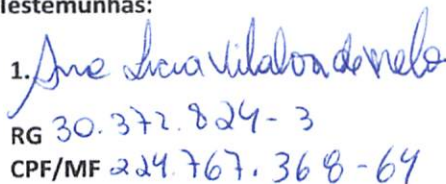 Testemunhas:
1. Ana Lucia Vilalva de Melo
RG 30.372.824-3
CPF/MF 224.767.368-64